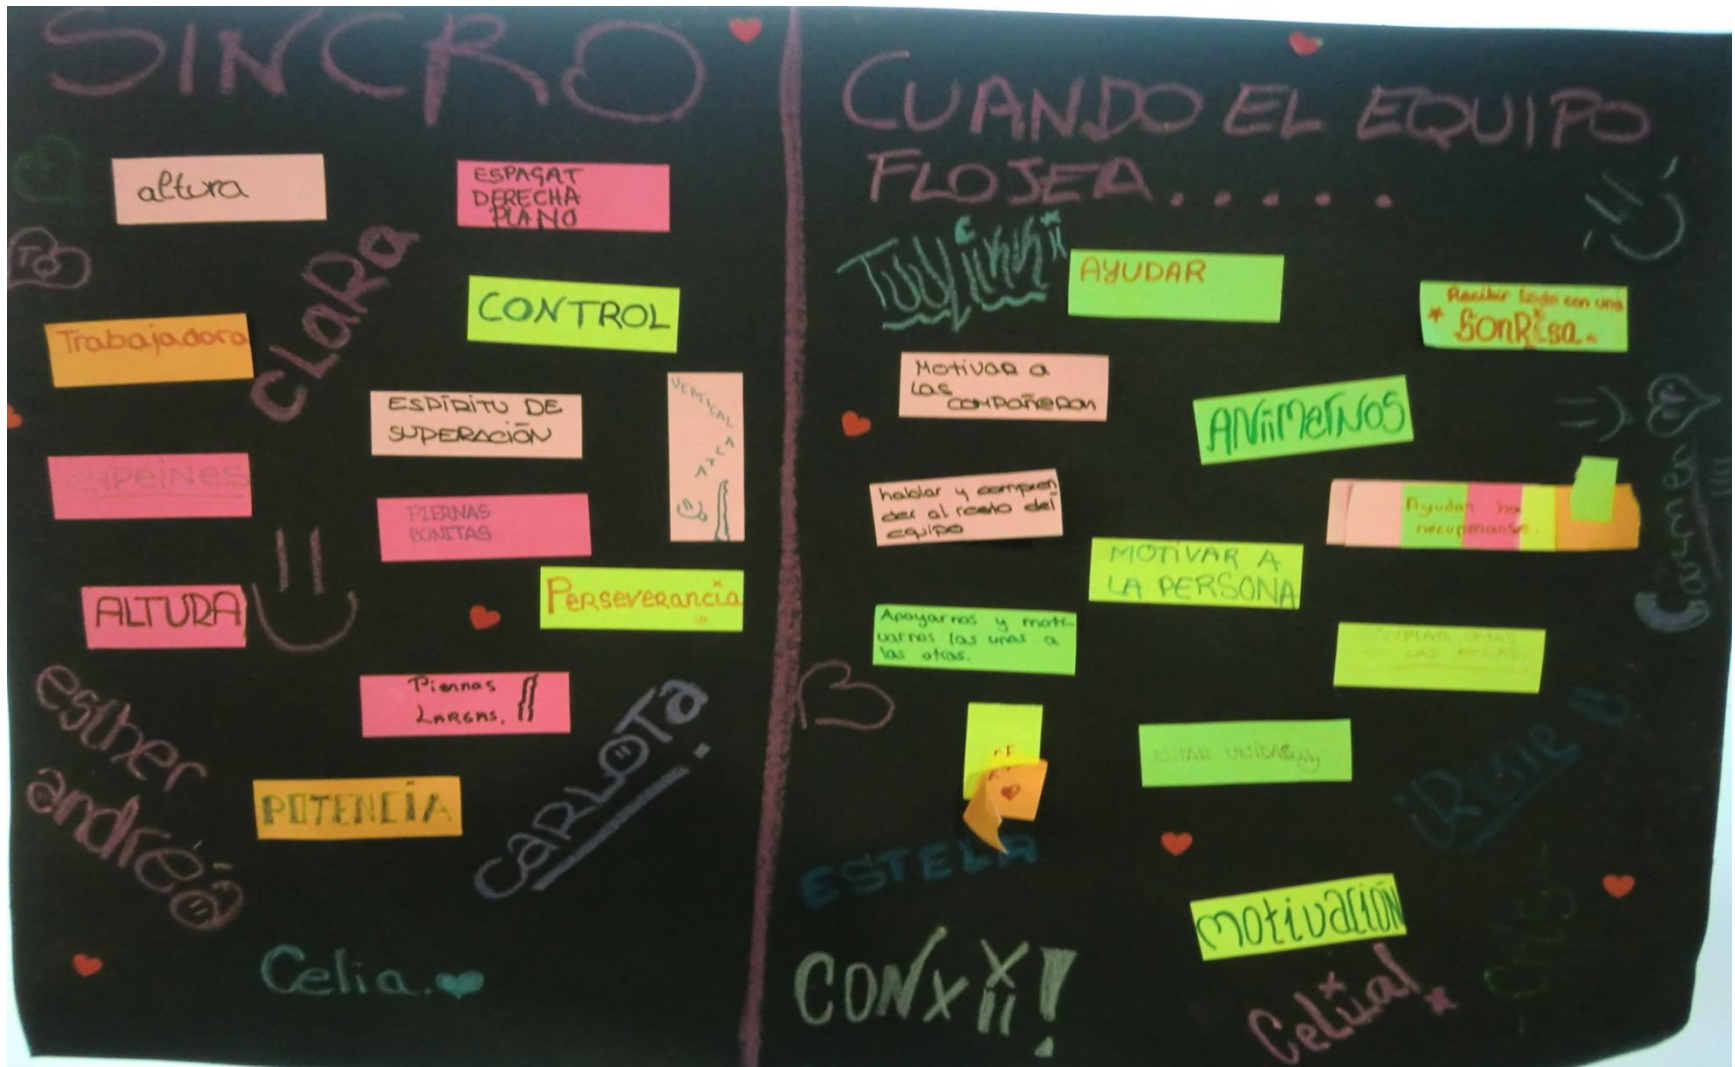 SINCRO
altura
ESPAGAT
DERECHA
PLANO
TQ
CLARA
CONTROL
Trabajadora
ESPÍRITU DE
SUPERACIÓN
VERTICAL
EMPEINES
PIERNAS
BONITAS
ALTURA
PERSEVERANCIA
Piernas
LARGAS.
esther
andréé
CARLOTA
POTENCIA
Celia.
CUANDO EL EQUIPO
FLOJEA.....
AYUDAR
Recibir todo con una
SONRisa.
Motivar a
Las
compañeras
ANiiMarNOS
hablar y compren
der al resto del
equipo
Ayudar ha
recuperarse.
Carmen
MOTIVAR A
LA PERSONA
Apoyarnos y moti-
varnos las unas a
las otras.
ESTAR UNIDAS
iRene
ESTELA
motivación
CONXii!
Celiia!
Cris